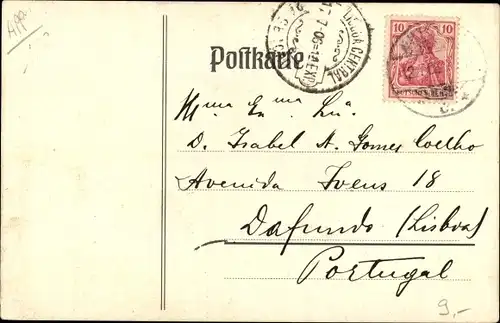 App.
Postkarte
LISBOA CENTRAL
10 10
DEUTSCHES REICH
Exma Snra
D. Isabel A. Gomes Coelho
Avenida Ivens 18
Dafundo (Lisboa)
Portugal
9,-